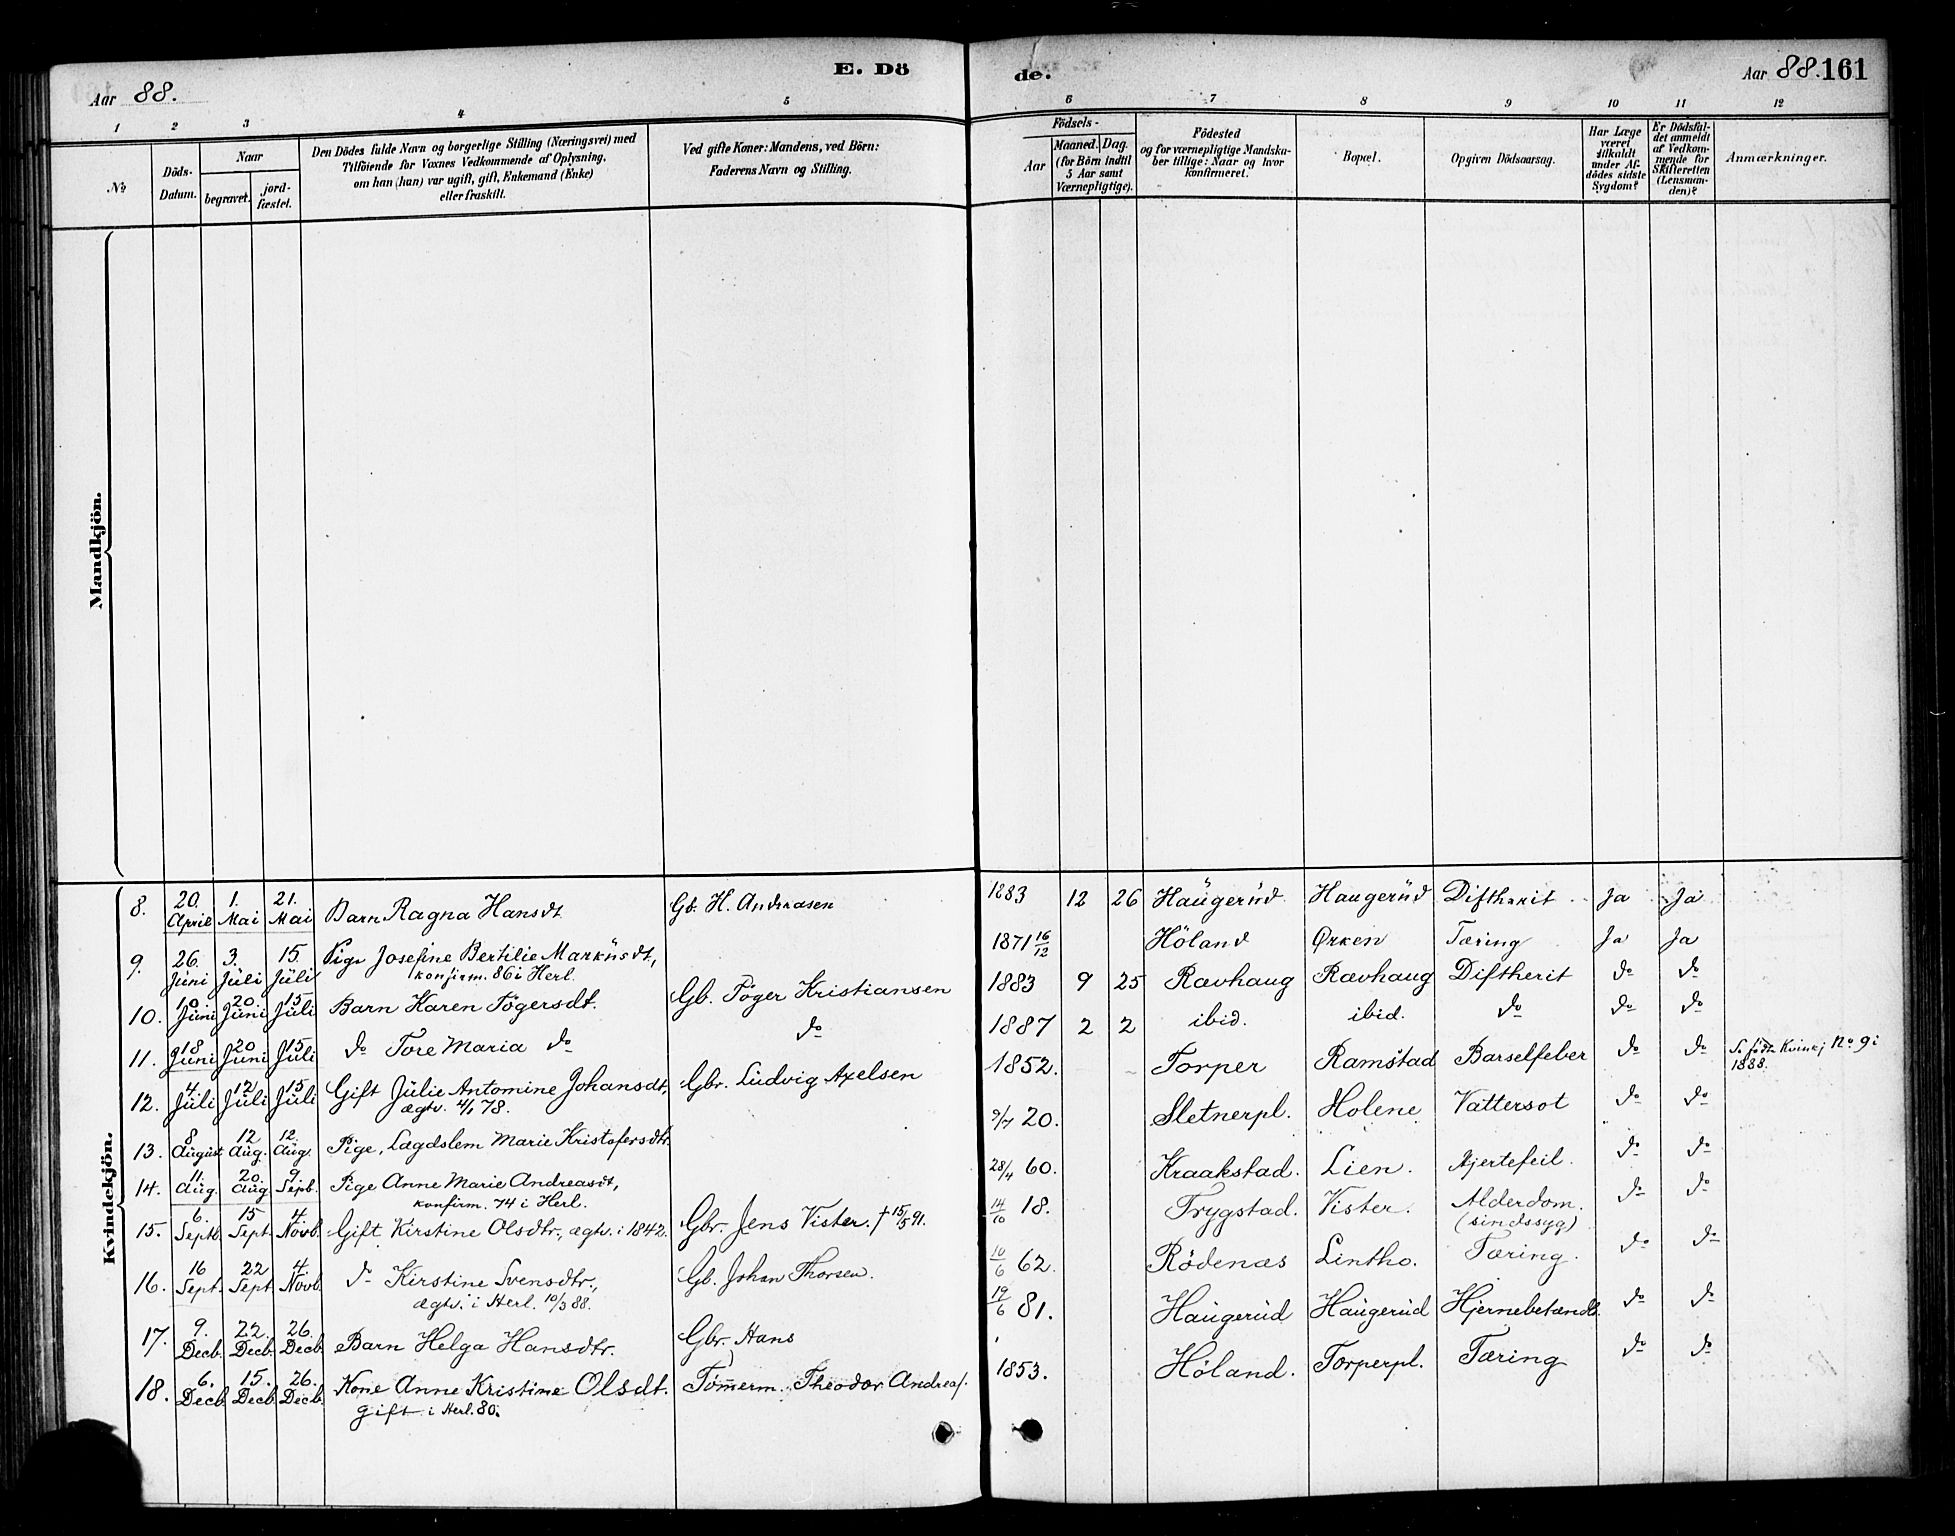 Aar 88.
E. Dö
de.
Aar 88. 161
1 2 3 4 5 6 7 8 9 10 11 12
No
Döds-
Datum.
Naar
begravet.
jord-
fæstet.
Den Dödes fulde Navn og borgerlige Stilling (Næringsvei) med
Tilföiende for Voxnes Vedkommende af Oplysning,
om han (hun) var ugift, gift, Enkemand (Enke)
eller fraskilt.
Ved gifte Koner: Mandens, ved Börn:
Faderens Navn og Stilling.
Födsels-
Aar
Maaned. Dag.
(for Börn indtil
5 Aar samt
Værnepligtige).
Födested
og for værnepligtige Mandska-
ber tillige: Naar og hvor
konfirmeret.
Bopæl.
Opgiven Dödsaarsag.
Har Læge
været
tilkaldt
under Af-
dödes sidste
Sygdom?
Er Dödsfal-
det anmeldt
af Vedkom-
mende for
Skifteretten
(Lensman-
den)?
Anmærkninger.
Mandkjön.
Kvindekjön.
8. 20. April 1. Mai 21. Mai Barn Ragna Hansdt. Gb. H. Andreasen 1883 12 26 Haugerud Haugerud Diftherit Ja Ja
9. 26. Juni 3. Juli 15. Juli Pige Josefine Bertilie Markusdt., 1871 16/12 Höland Ørken Tæring Ja Ja
konfirm. 86 i Herl.
10. 10 Juni 20 Juni 15 Juli Barn Karen Tögersdt. Gb. Töger Kristiansen 1883 9 25 Ravhaug Rævhaug Diftherit do do
11. 18 Juni 20 Juni 15 Juli do Tore Maria do do 1887 2 2 ibid. ibid. do do do
12. 4 Juli 12 Juli 15 Juli Gift Julie Antomine Johansdt, Gbr. Ludvig Axelsen 1852. Torper Ramstad Barselfeber do do Se fødte Kvinkj No 9 i
ægtv. 4/1 78. 1888.
13. 8 August 12 Aug. 12. Aug. Pige, Lægdslem Marie Kristofersdtr. 9/7 20. Sletnerpl. Holene Vattersot do do
14. 11. Aug. 20. Aug 9 Septb. Pige Anne Marie Andreasdt, 28/4 60. Kraakstad. Lien. Hjertefeil. do do
konfirm. 74 i Herl.
15. 6. Septb. 15 Sept. 4 Novb. Gift Kirstine Olsdtr., ægtv. i 1842. Gbr. Jens Vister. † 15/5 91. 14/10 18. Trygstad. Vister. Alderdom. do do
(sindssyg)
16. 16 Sept. 22 Sept 4. Novb. do Kirstine Svensdtr., Gb. Johan Thorsen. 10/6 62. Rödenæs Lintho. Tæring. do do
ægtv. i Herl. 10/3 88.
17. 9. Decb. 22. Decb. 26. Decb. Barn Helga Hansdtr. Gbr. Hans 19/6 81. Haugerud Haugerud Hjernebetændt. do do
18. 6. Decb 15. Decb. 26. Decb. Kone Anne Kristine Olsdt. Tömmerm. Theodor Andreas. 1853. Höland. Torperpl. Tæring do do
gift i Herl. 80.